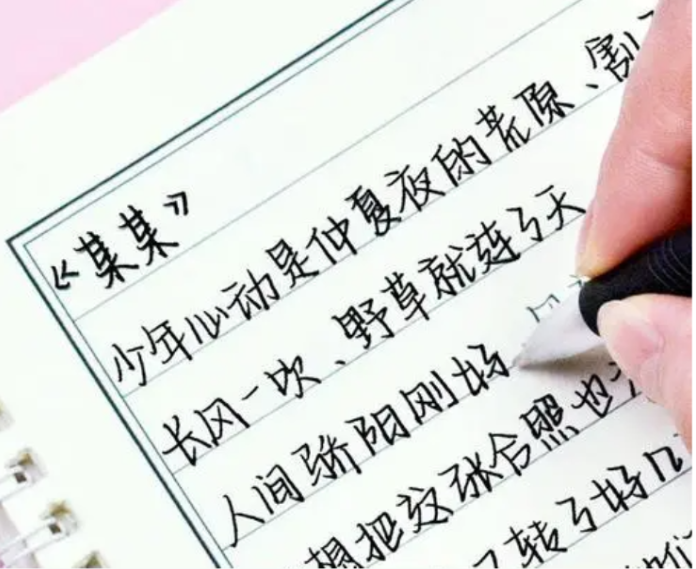 《某某》
少年心动是仲夏夜的荒原、割
长风一吹、野草就连了天
人间骄阳刚好
想把这张合照也
转了好几